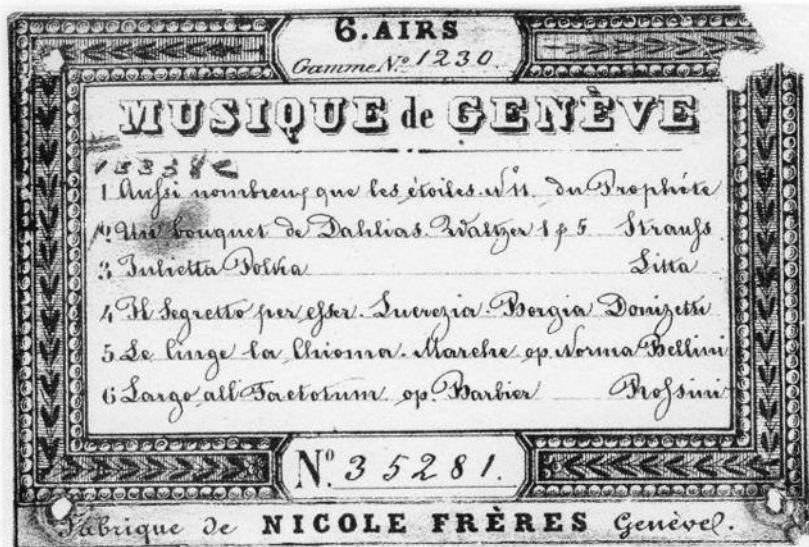 6. AIRS
Gamme Nº 1230.
MUSIQUE de GENÈVE
1 Aussi nombreux que les étoiles. Nº 11. du Prophète
2 Un bouquet de Dahlias. Waltzer 1 & 5 Strauss
3 Julietta Polka Litta
4 Il Segretto per esser. Lucrezia. Borgia Donizetti
5 Le Cinge la Chioma. Marche op. Norma Bellini
6 Largo all Factotum op. Barbier Rossini
Nº 35281.
Fabrique de NICOLE FRÈRES Genève.